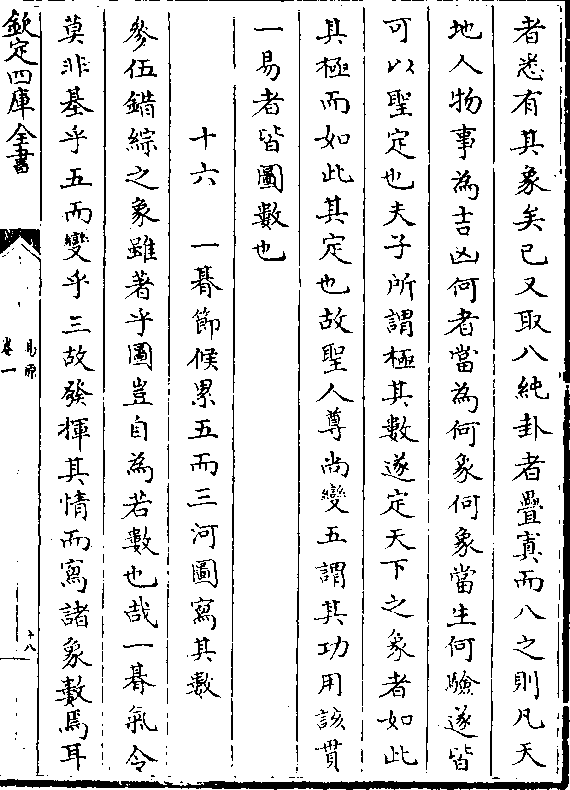 者悉有其象矣已又取八純卦者疊寘而八之則凡天
地人物事為吉凶何者當為何象何象當生何驗遂皆
可以聖定也夫子所謂極其數遂定天下之象者如此
其極而如此其定也故聖人尊尚變五謂其功用該貫
一易者皆圖數也
十六　一朞節候累五而三河圖寫其數
參伍錯綜之象雖著乎圖豈自為若數也哉一朞氣令
莫非基乎五而變乎三故發揮其情而寫諸象數焉耳
欽定四庫全書
易原
卷一
十八